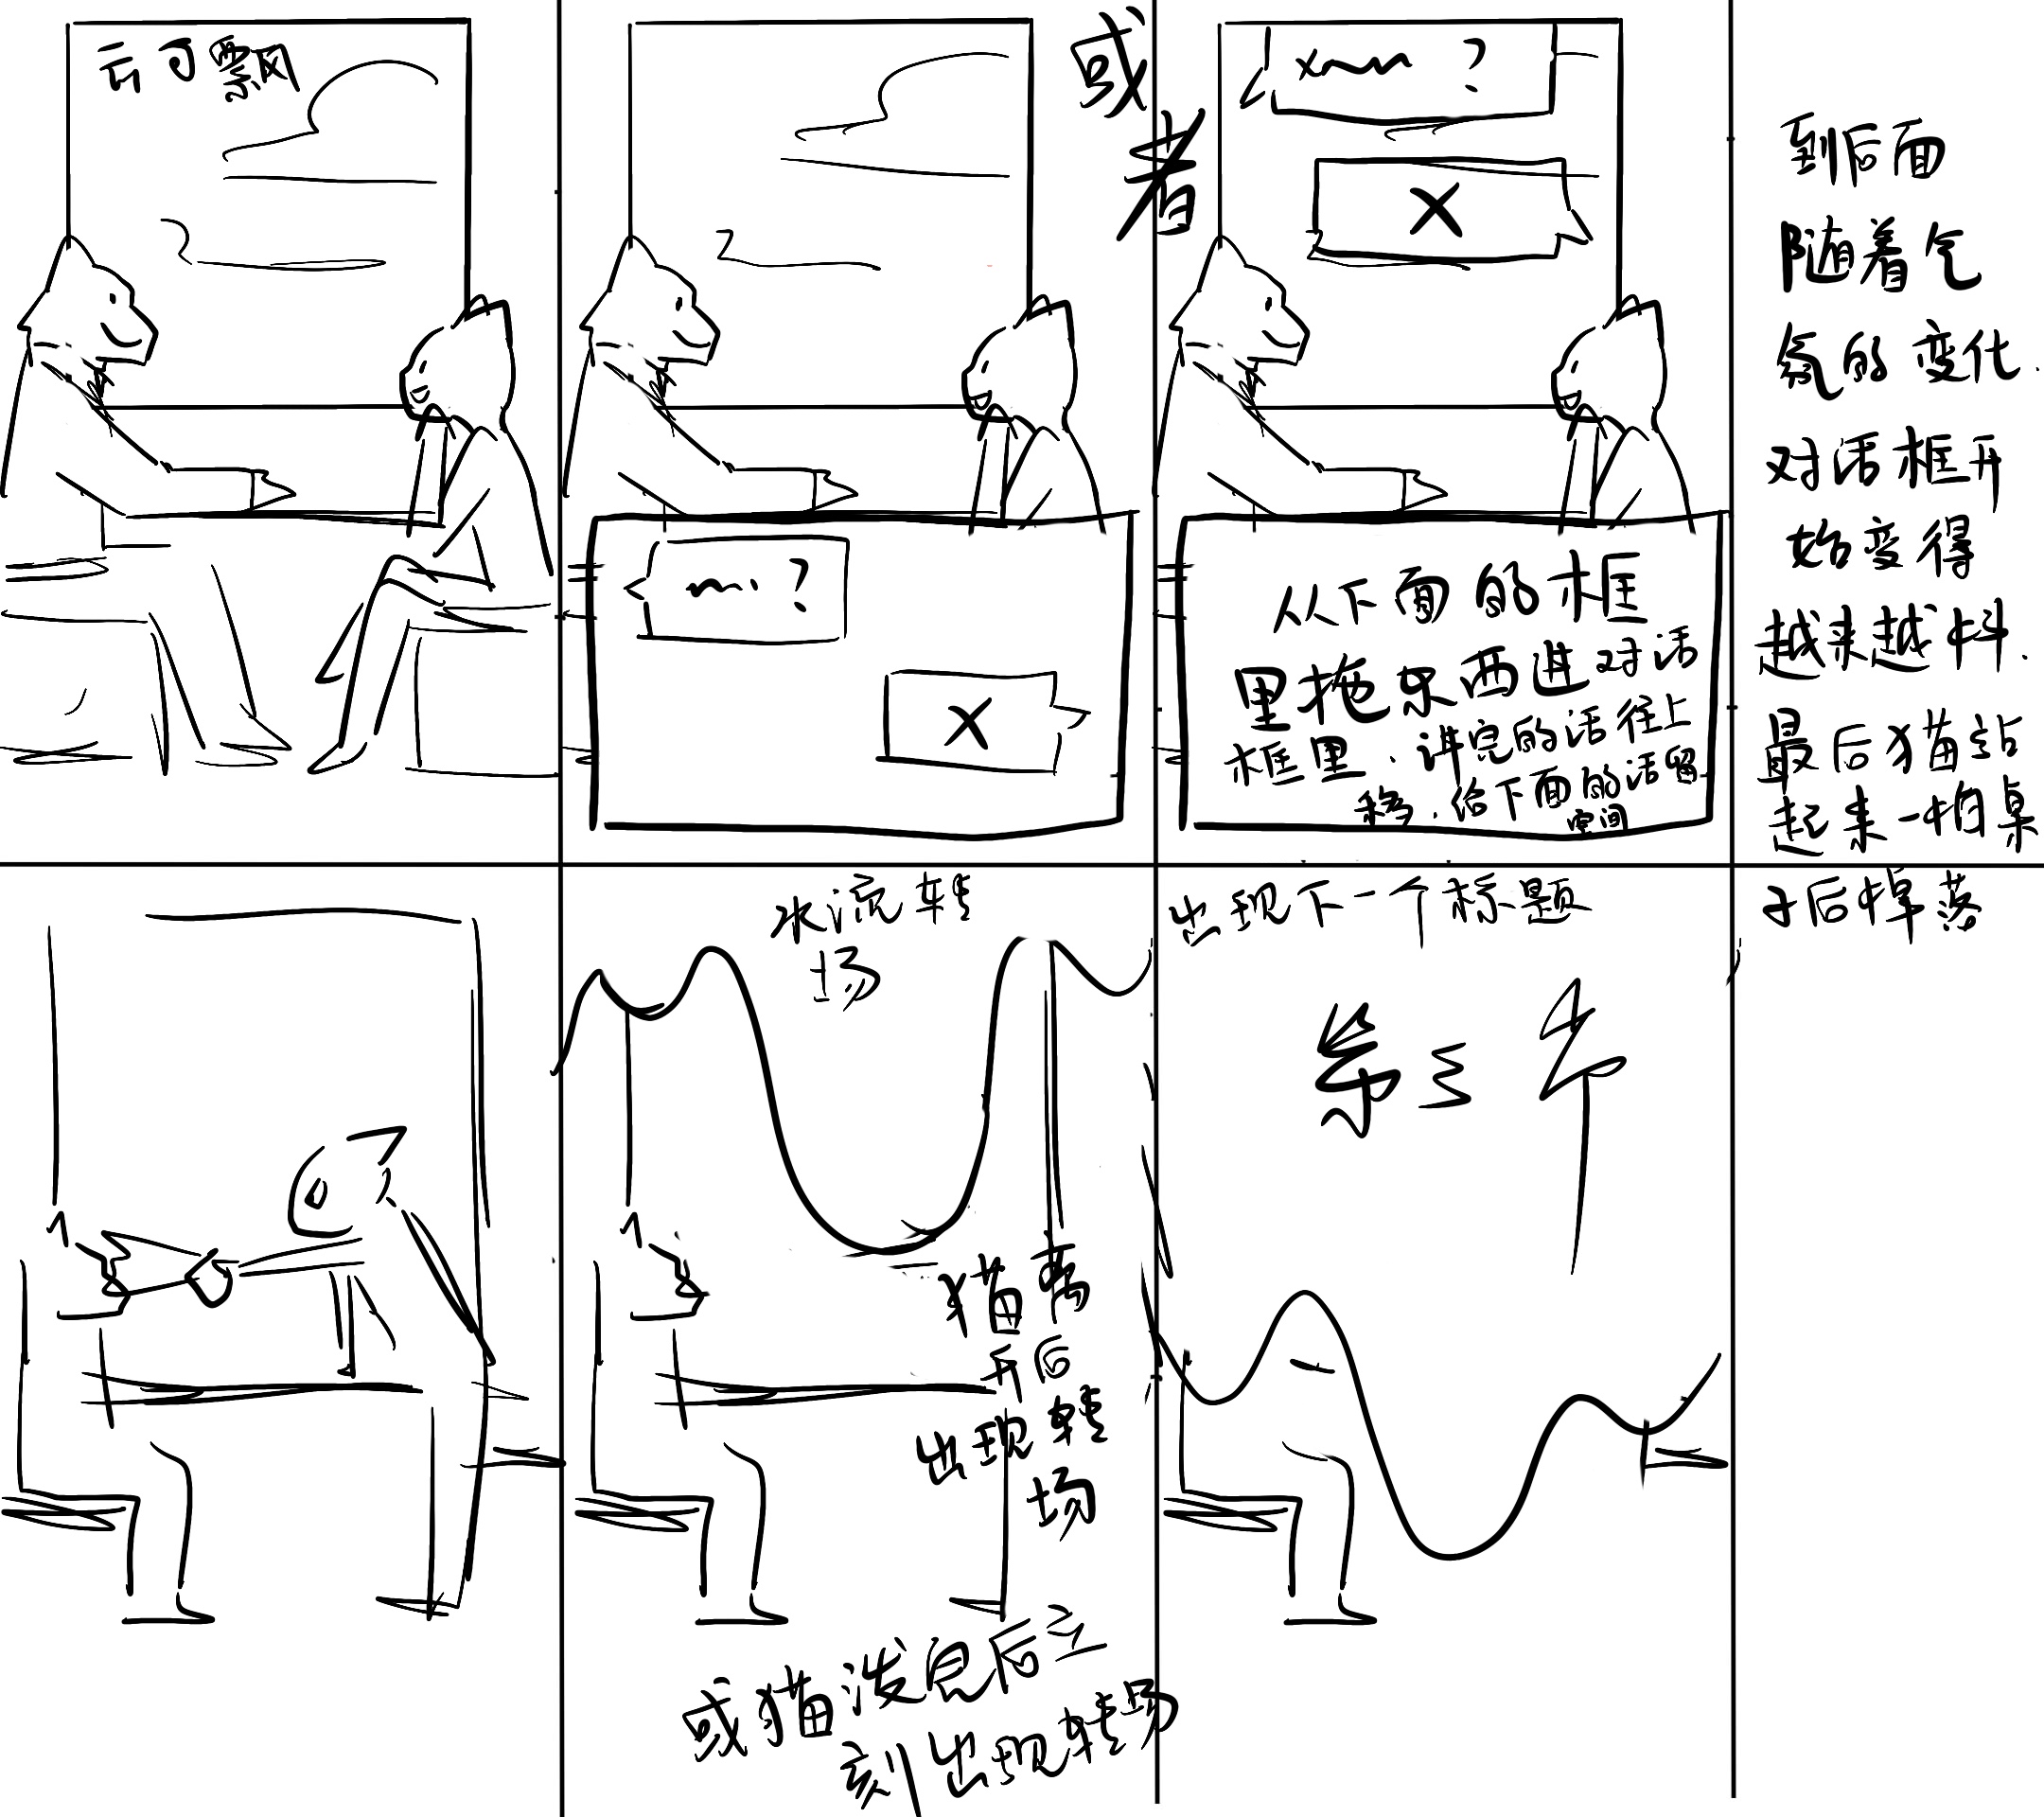 云可飘风
~~·?
X
或
者
x~~~?
X
从下面的框
里拖东西进对话
框里.讲完的话往上
移.给下面的话留
空间
到后面
随着气
氛的变化.
对话框开
始变得
越来越抖.
最后猫站
起来一拍桌
子后掉落
水流转
场
猫离
开后
出现转
场
或猫泼完后立
刻出现转场
出现下一个标题
第三个